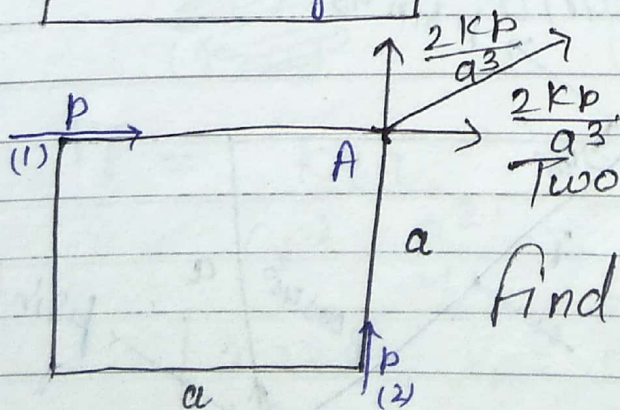 2Kp
a³
P
2Kp
a³
(1)
A
Two
a
find
p
(2)
a